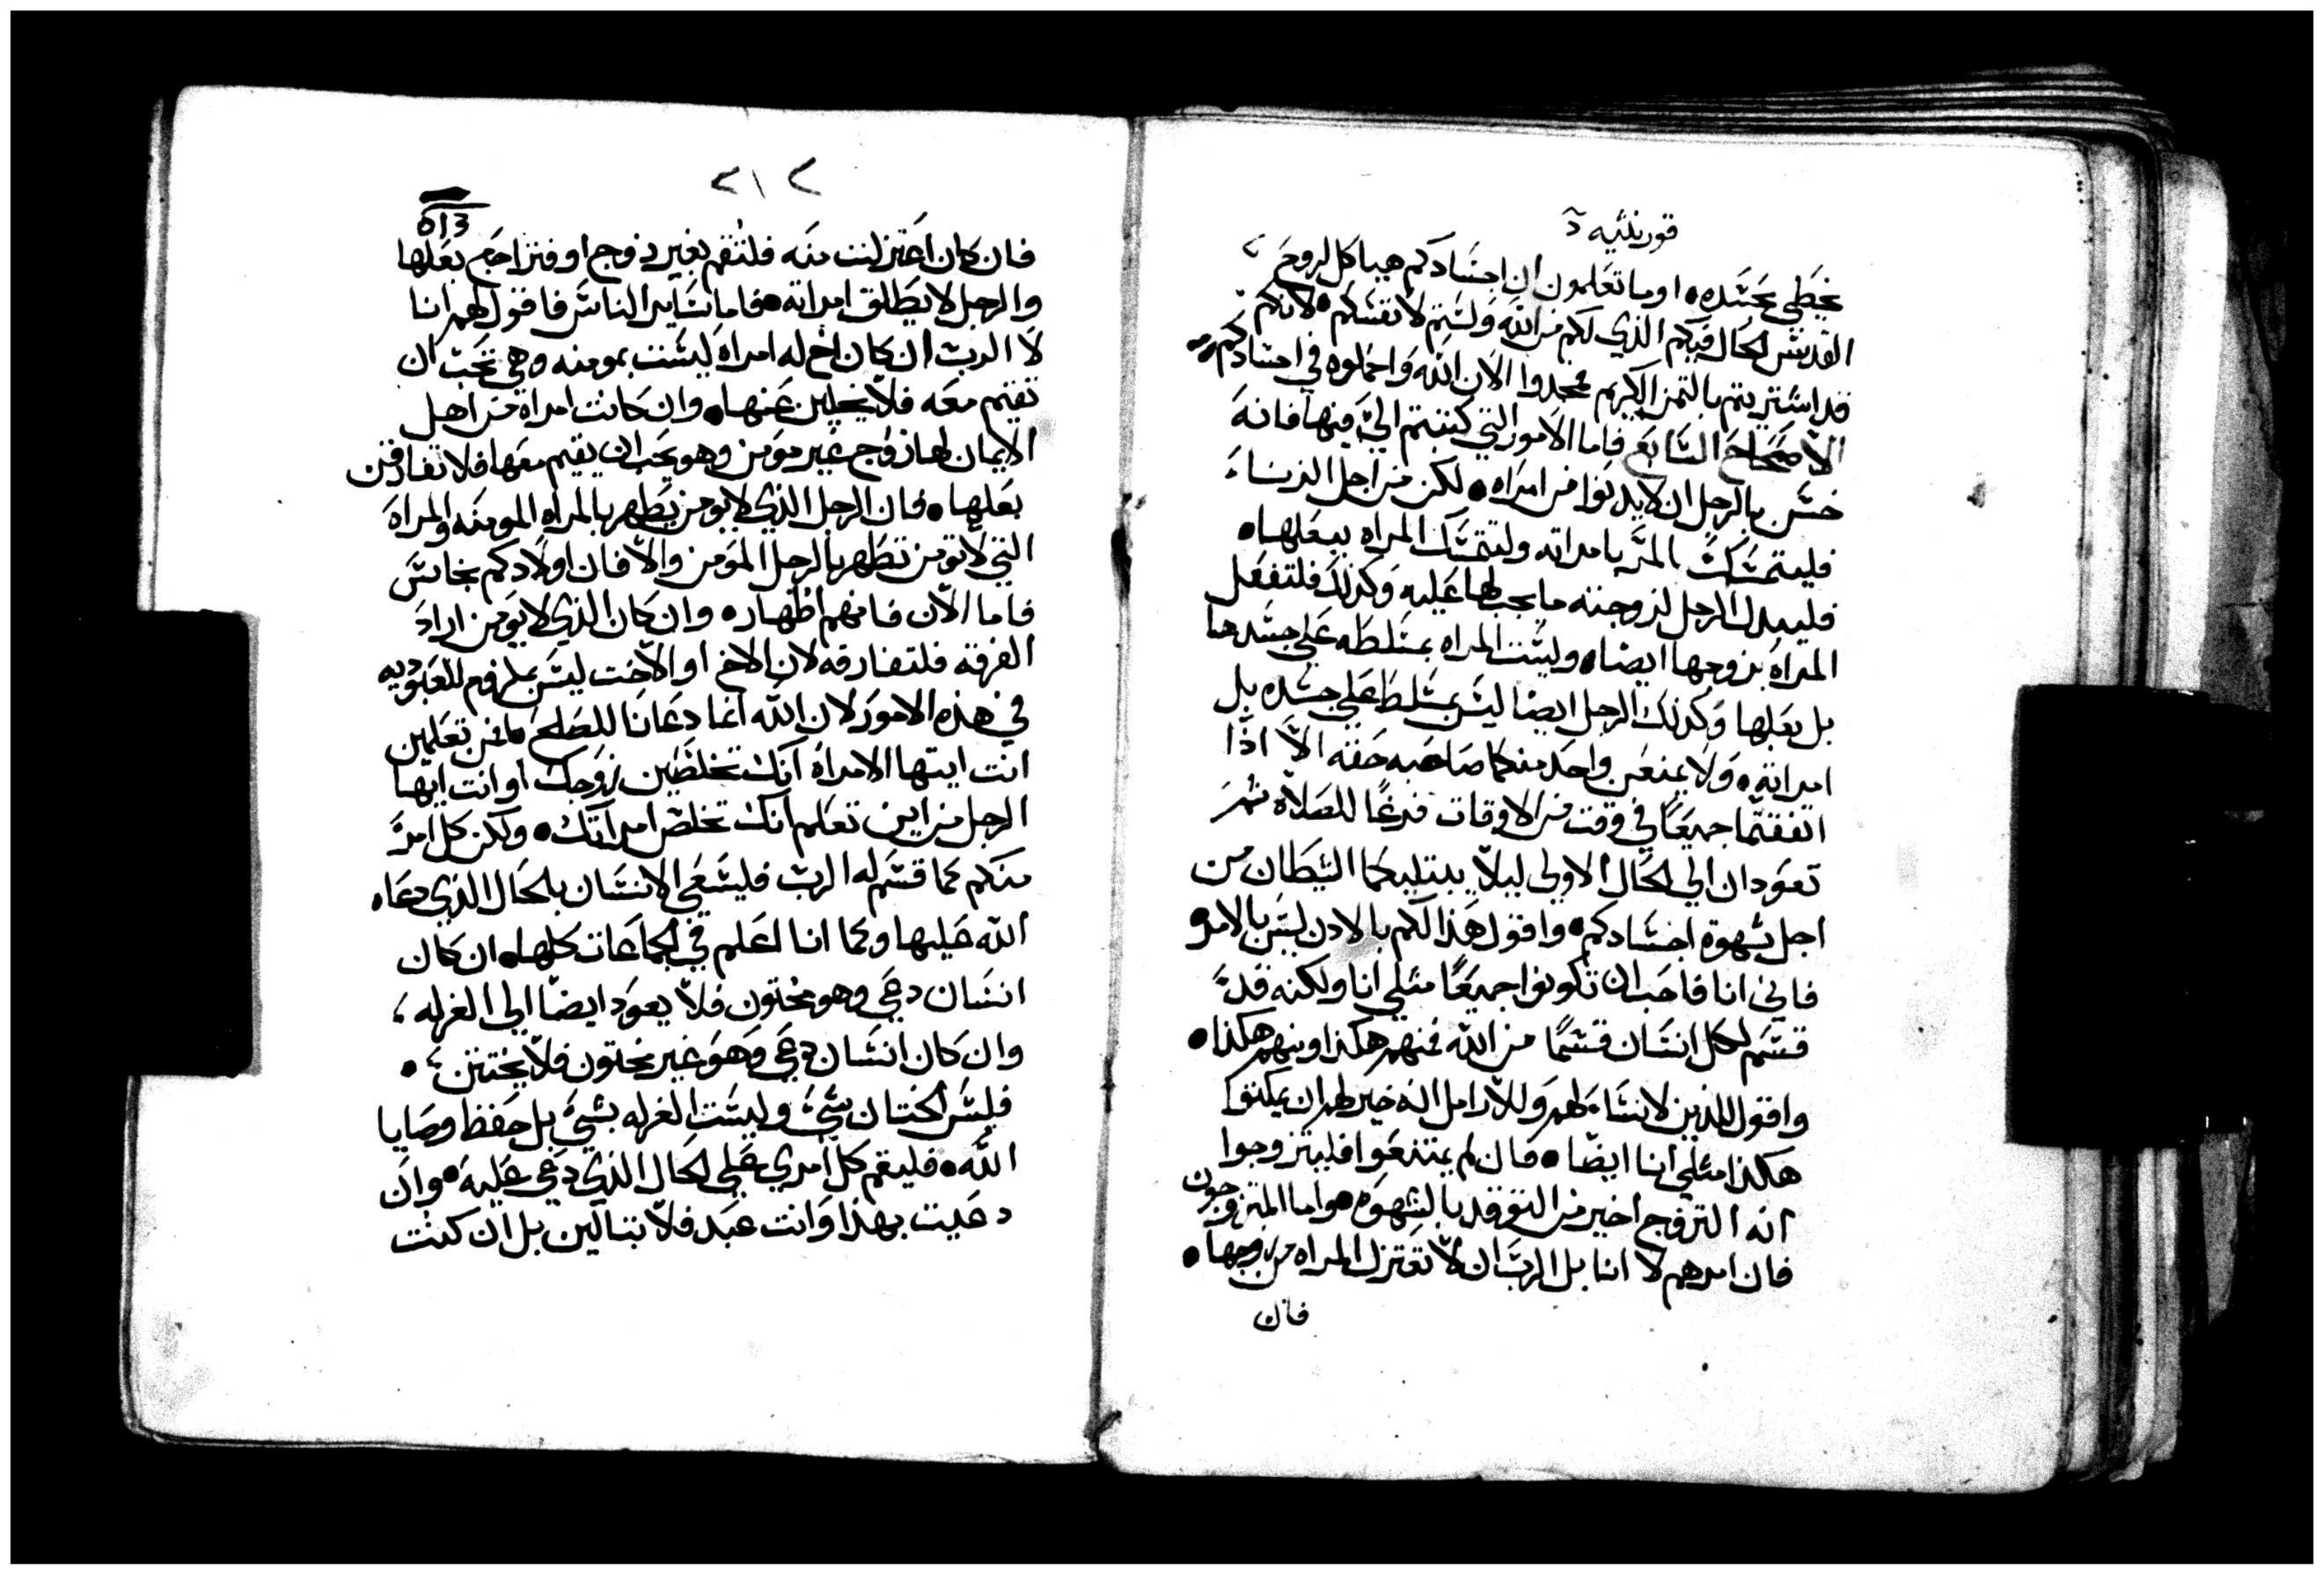 قورنثيه ¯د
يخطي بجسده • اوما تعلمون ان اجسادكم هيا كل لروح
القدس الحال فيكم الذي لكم من الله ولستم لانفسكم • لانكم
قد اشتريتم بالثمن الكريم مجدوا الان الله واحملوه في اجسادكم
الاصحاح السابع فاما الامور التي كتبتم اليّ فيها فانه
حسن بالرجل ان لا يدنوا من امراه • لكن من اجل الزنا
فليتمسك المرء بامراته ولتتمسك المراه ببعلها •
فليبدل الرجل لزوجته ما يجب لها عليه وكذلك فلتفعل
المراه بزوجها ايضا • وليست المراه بمسلطه على جسدها
بل بعلها وكذلك الرجل ايضا ليس بمسلط على جسده بل
امراته • ولا يمنعن واحد منكما صاحبه حقه الا اذا
اتفقتما جميعًا في وقت من الاوقات فرغًا للصلاه ثم
تعودان الى الحال الاولى ليلا يبتليكما الشيطان من
اجل شهوة اجسادكم • واقول هذا لكم بالاذن ليس بالامر
فاني انا فاحب ان تكونوا جميعًا مثلي انا ولكنه قد
قسم لكل انسان قسمًا من الله فمنهم هكذا ومنهم هكذا •
واقول للذين لا نسا لهم وللارامل انه خير لهم ان يمكثوا
هكذا مثلي انا ايضا • فان لم يمتنعوا فليتزوجوا
انه التزوج اخير من التوقد بالشهوه • واما المتزوجون
فان امرهم لا انا بل الرب ان لا تعتزل المراه من زوجها •
فان
٢١٢
فان كان اعتزلت منه فلتقم بغير زوج او فتراجع بعلها
والرجل لا يطلق امراته • فاما ساير الناس فاقول لهم انا
لا الرب ان كان اخ له امراه ليست بمومنه وهي تحب ان
تقيم معه فلا يخلين عنها • وان كانت امراة من اهل
الايمان لها زوج غير مومن وهو يحب ان يقيم معها فلا تفارقن
بعلها • فان الرجل الذي لا يومن يطهر بالمراه المومنه والمراه
التي لا تومن تطهر بالرجل المومن والا فان اولادكم نجاس
فاما الان فانهم اطهار • وان كان الذي لا يومن اراد
الفرقه فلتفارقه لان الاخ او الاخت ليس بملزوم للعبوديه
في هذه الامور لان الله انما دعانا للصلح فمن تعلمين
انت ايتها الامراه انك تخلصين زوجك او انت ايها
الرجل من اين تعلم انك تخلص امراتك • ولكن كل امرء
منكم كما قسم له الرب فليسعى الانسان بالحال الذي دعاه
الله عليها وكما انا اعلم في الجماعات كلها • ان كان
انسان دعي وهو مختون فلا يعود ايضا الى الغرله ؛
وان كان انسان دعي وهو غير مختون فلا يختتن ؛ •
فليس الختان شي وليست الغرله بشي بل حفظ وصايا
الله • فليقم كل امري على الحال الذي دعي عليه • وان
دعيت بهذا وانت عبد فلا تبالين بل ان كنت